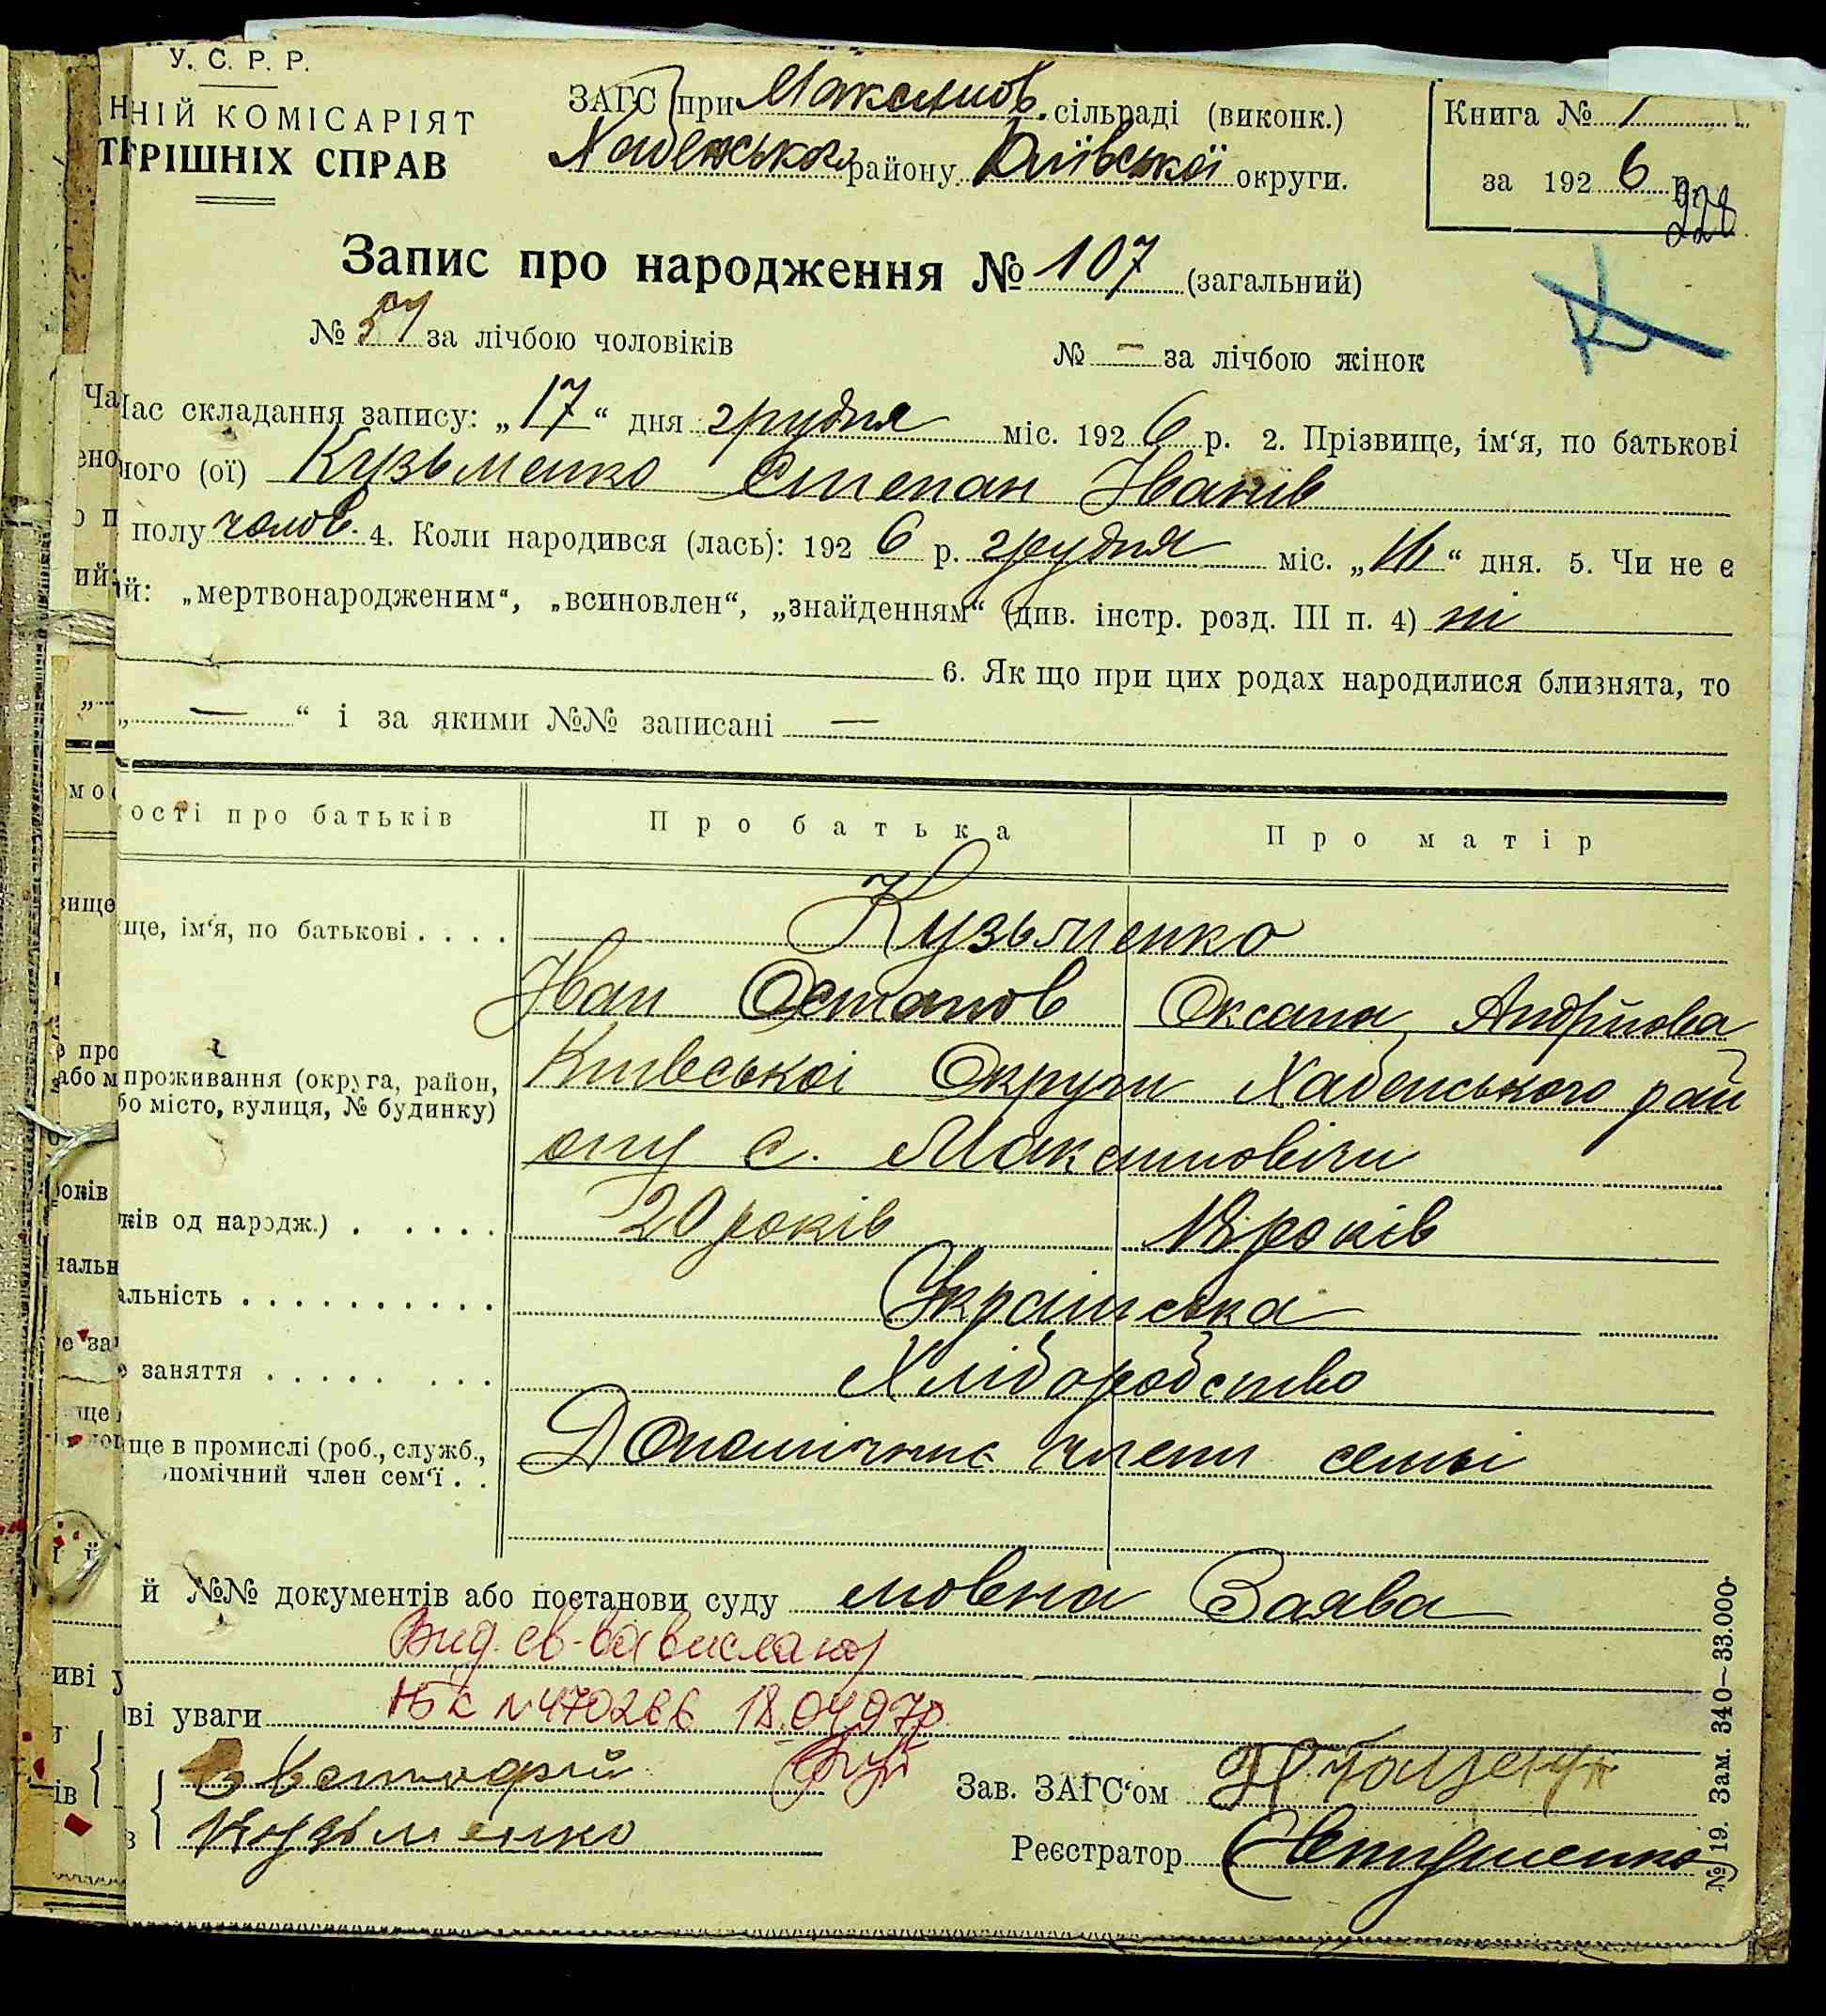 У. С. Р. Р.
НІЙ КОМІСАРІЯТ
ТРІШНІХ СПРАВ
ЗАГС при Максимов. сільраді (виконк.)
Хабенського району Київської округи.
Книга № 1
за 192 6 р.
228
Запис про народження № 107 (загальний)
№ 57 за лічбою чоловіків № — за лічбою жінок
Час складання запису: „17“ дня грудня міс. 192 6 р. 2. Прізвище, ім‘я, по батькові
ного (ої) Кузьменко Степан Іванів
полу чолов. 4. Коли народився (лась): 192 6 р. грудня міс. „ “ дня. 5. Чи не є
ий: „мертвонародженим“, „всиновлен“, „знайденням“ (див. інстр. розд. III п. 4) ні
6. Якщо при цих родах народилися близнята, то
„ — “ і за якими №№ записані —
ості про батьків Про батька Про матір
ще, ім‘я, по батькові . . . . Кузьменко
Іван Остапов Оксана Андрійова
проживання (округа, район, Київської Округи Хабенського рай
бо місто, вулиця, № будинку) ону с. Максимовічи
ків од народж.) . . . . . 20 років 18 років
альність . . . . . . . . . . Українська
заняття . . . . . . . . Хліборобство
ще в промислі (роб., служб., Допомічние члени семьі
помічний член сем‘ї . .
й №№ документів або постанови суду мовна Заява
Вид. св-во
ві уваги ЮБК №470266 18.04.97р.
Зав. ЗАГС‘ом
Кузьменко
Реєстратор Євтушенко
№ 19. Зам. 340—33.000.